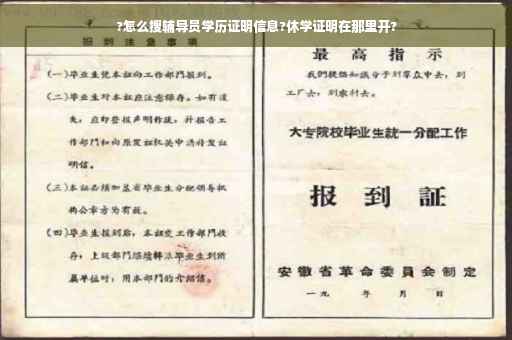 ?怎么搜辅导员学历证明信息?休学证明在那里开?
报到注意事项
(一)毕业生凭本证向工作部門报到。
(二)毕业生对本证应注意保存。如有遗
失，应即登报声明作废，并报告工
作部門和向原发证机关申請补发证
明信。
(三)本证必须加盖省毕业生分配領导机
构公章方为有效。
(四)毕业生报到后，本证交工作部門收
存；上级部門继續轉派毕业生到所
属单位时，用本部門的介绍信。
最高指示
我們提倡知識分子到羣众中去，到
工厂去，到农村去。
大专院校毕业生統一分配工作
报到証
安徽省革命委員会制定
一九 年 月 日